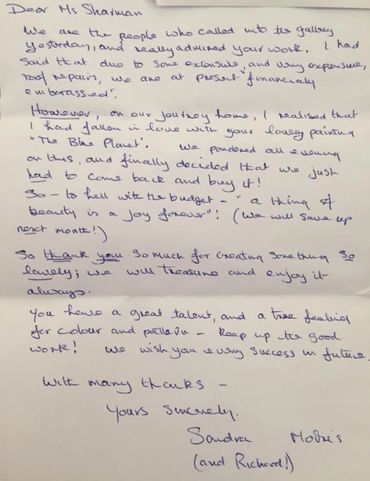 Dear Ms Sharman
We are the people who called into the gallery
yesterday, and really admired your work. I had
said that due to some extensive, and very expensive,
roof repairs, we are at present "financially
embarassed".
However, on our journey home, I realised that
I had fallen in love with your lovely painting
"The Blue Planet". We pondered all evening
on this, and finally decided that we just
had to come back and buy it!
So - to hell with the budget - "a thing of
beauty is a joy forever"! (We will save up
next month!)
So thank you so much for creating something so
lovely; we will treasure and enjoy it
always.
You have a great talent, and a true feeling
for colour and pattern - keep up the good
work! We wish you every success in future.
With many thanks -
Yours sincerely.
Sandra
(and Richard!)